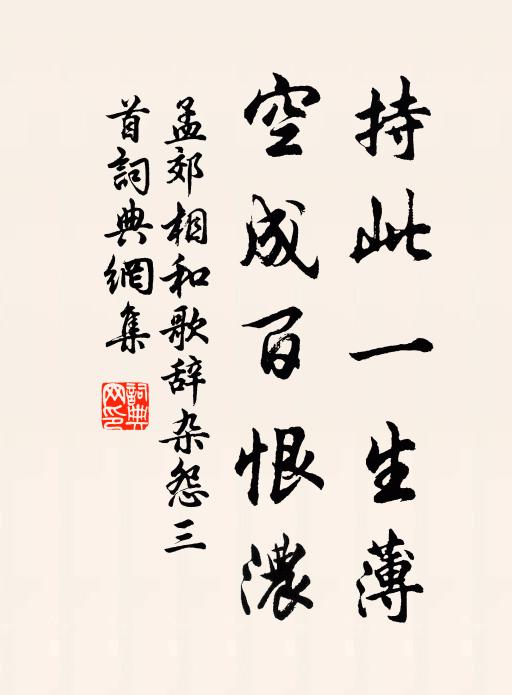 持此一生薄
空成百恨濃
孟郊相和歌辞杂怨三
首詞典網集
詞典
网印